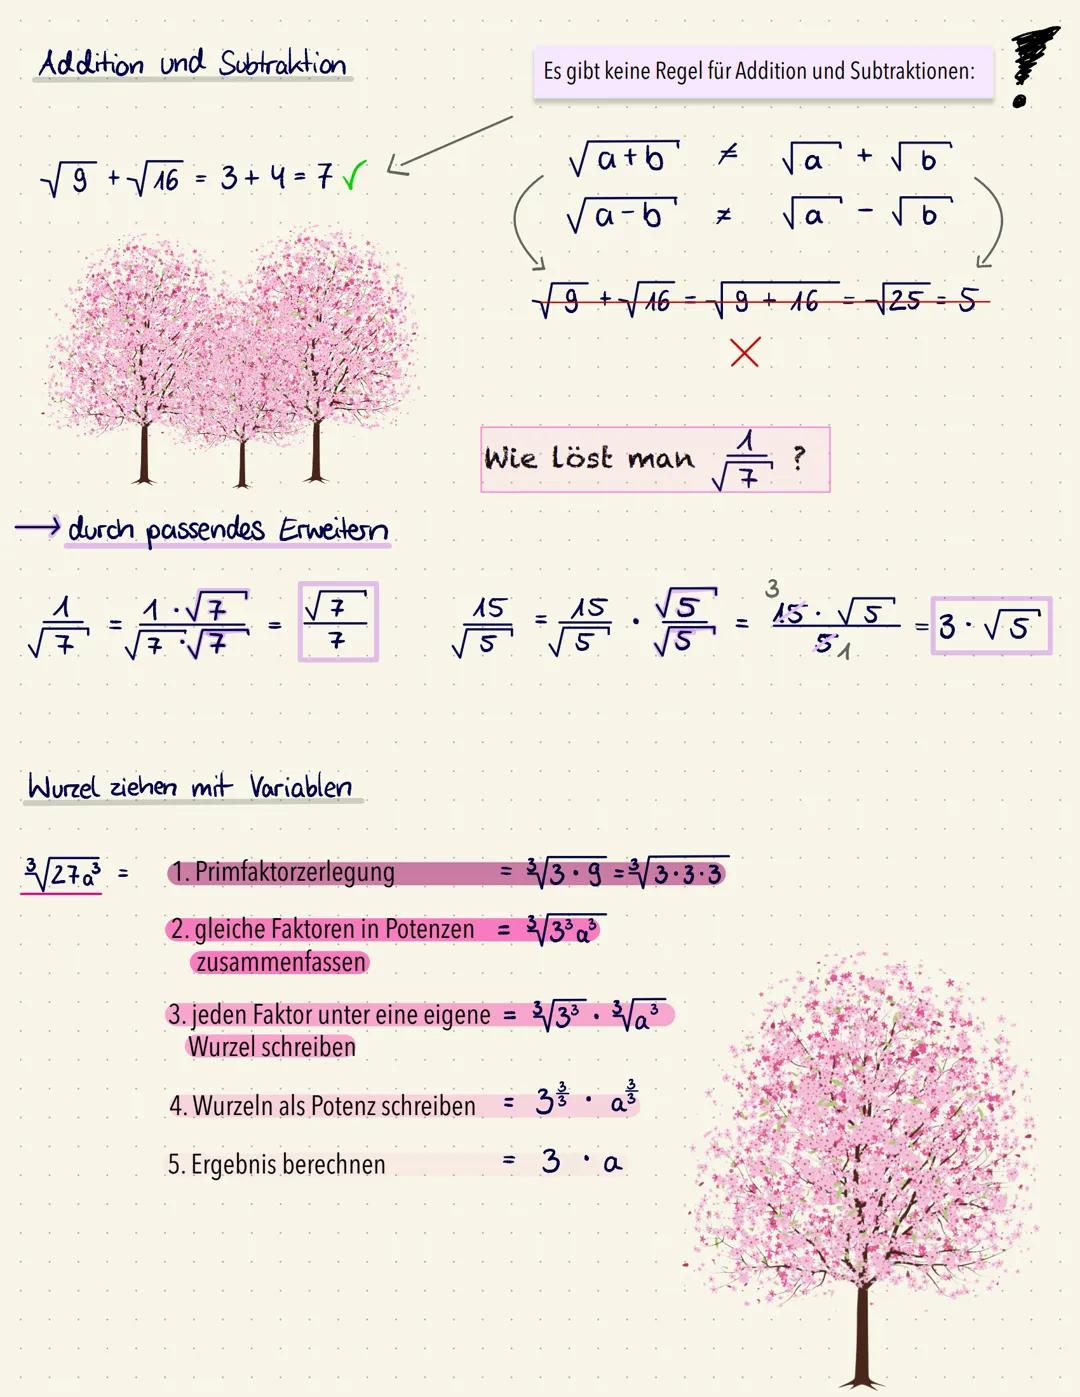 Addition und Subtraktion
Es gibt keine Regel für Addition und Subtraktionen: !
√9 + √16 = 3 + 4 = 7 ✓
√(a+b) ≠ √a + √b
√(a-b) ≠ √a - √b
√9 + √16 = √(9 + 16) = √25 = 5
×
Wie löst man 1/√7 ?
→ durch passendes Erweitern
1/√7 = (1·√7)/(√7·√7) = √7/7
15/√5 = 15/√5 · √5/√5 = (15·√5)/5 = 3·√5
3
1
Wurzel ziehen mit Variablen
³√(27a³) =
1. Primfaktorzerlegung = ³√(3·9) = ³√(3·3·3)
2. gleiche Faktoren in Potenzen = ³√(3³a³)
zusammenfassen
3. jeden Faktor unter eine eigene = ³√(3³) · ³√(a³)
Wurzel schreiben
4. Wurzeln als Potenz schreiben = 3^(3/3) · a^(3/3)
5. Ergebnis berechnen = 3 · a